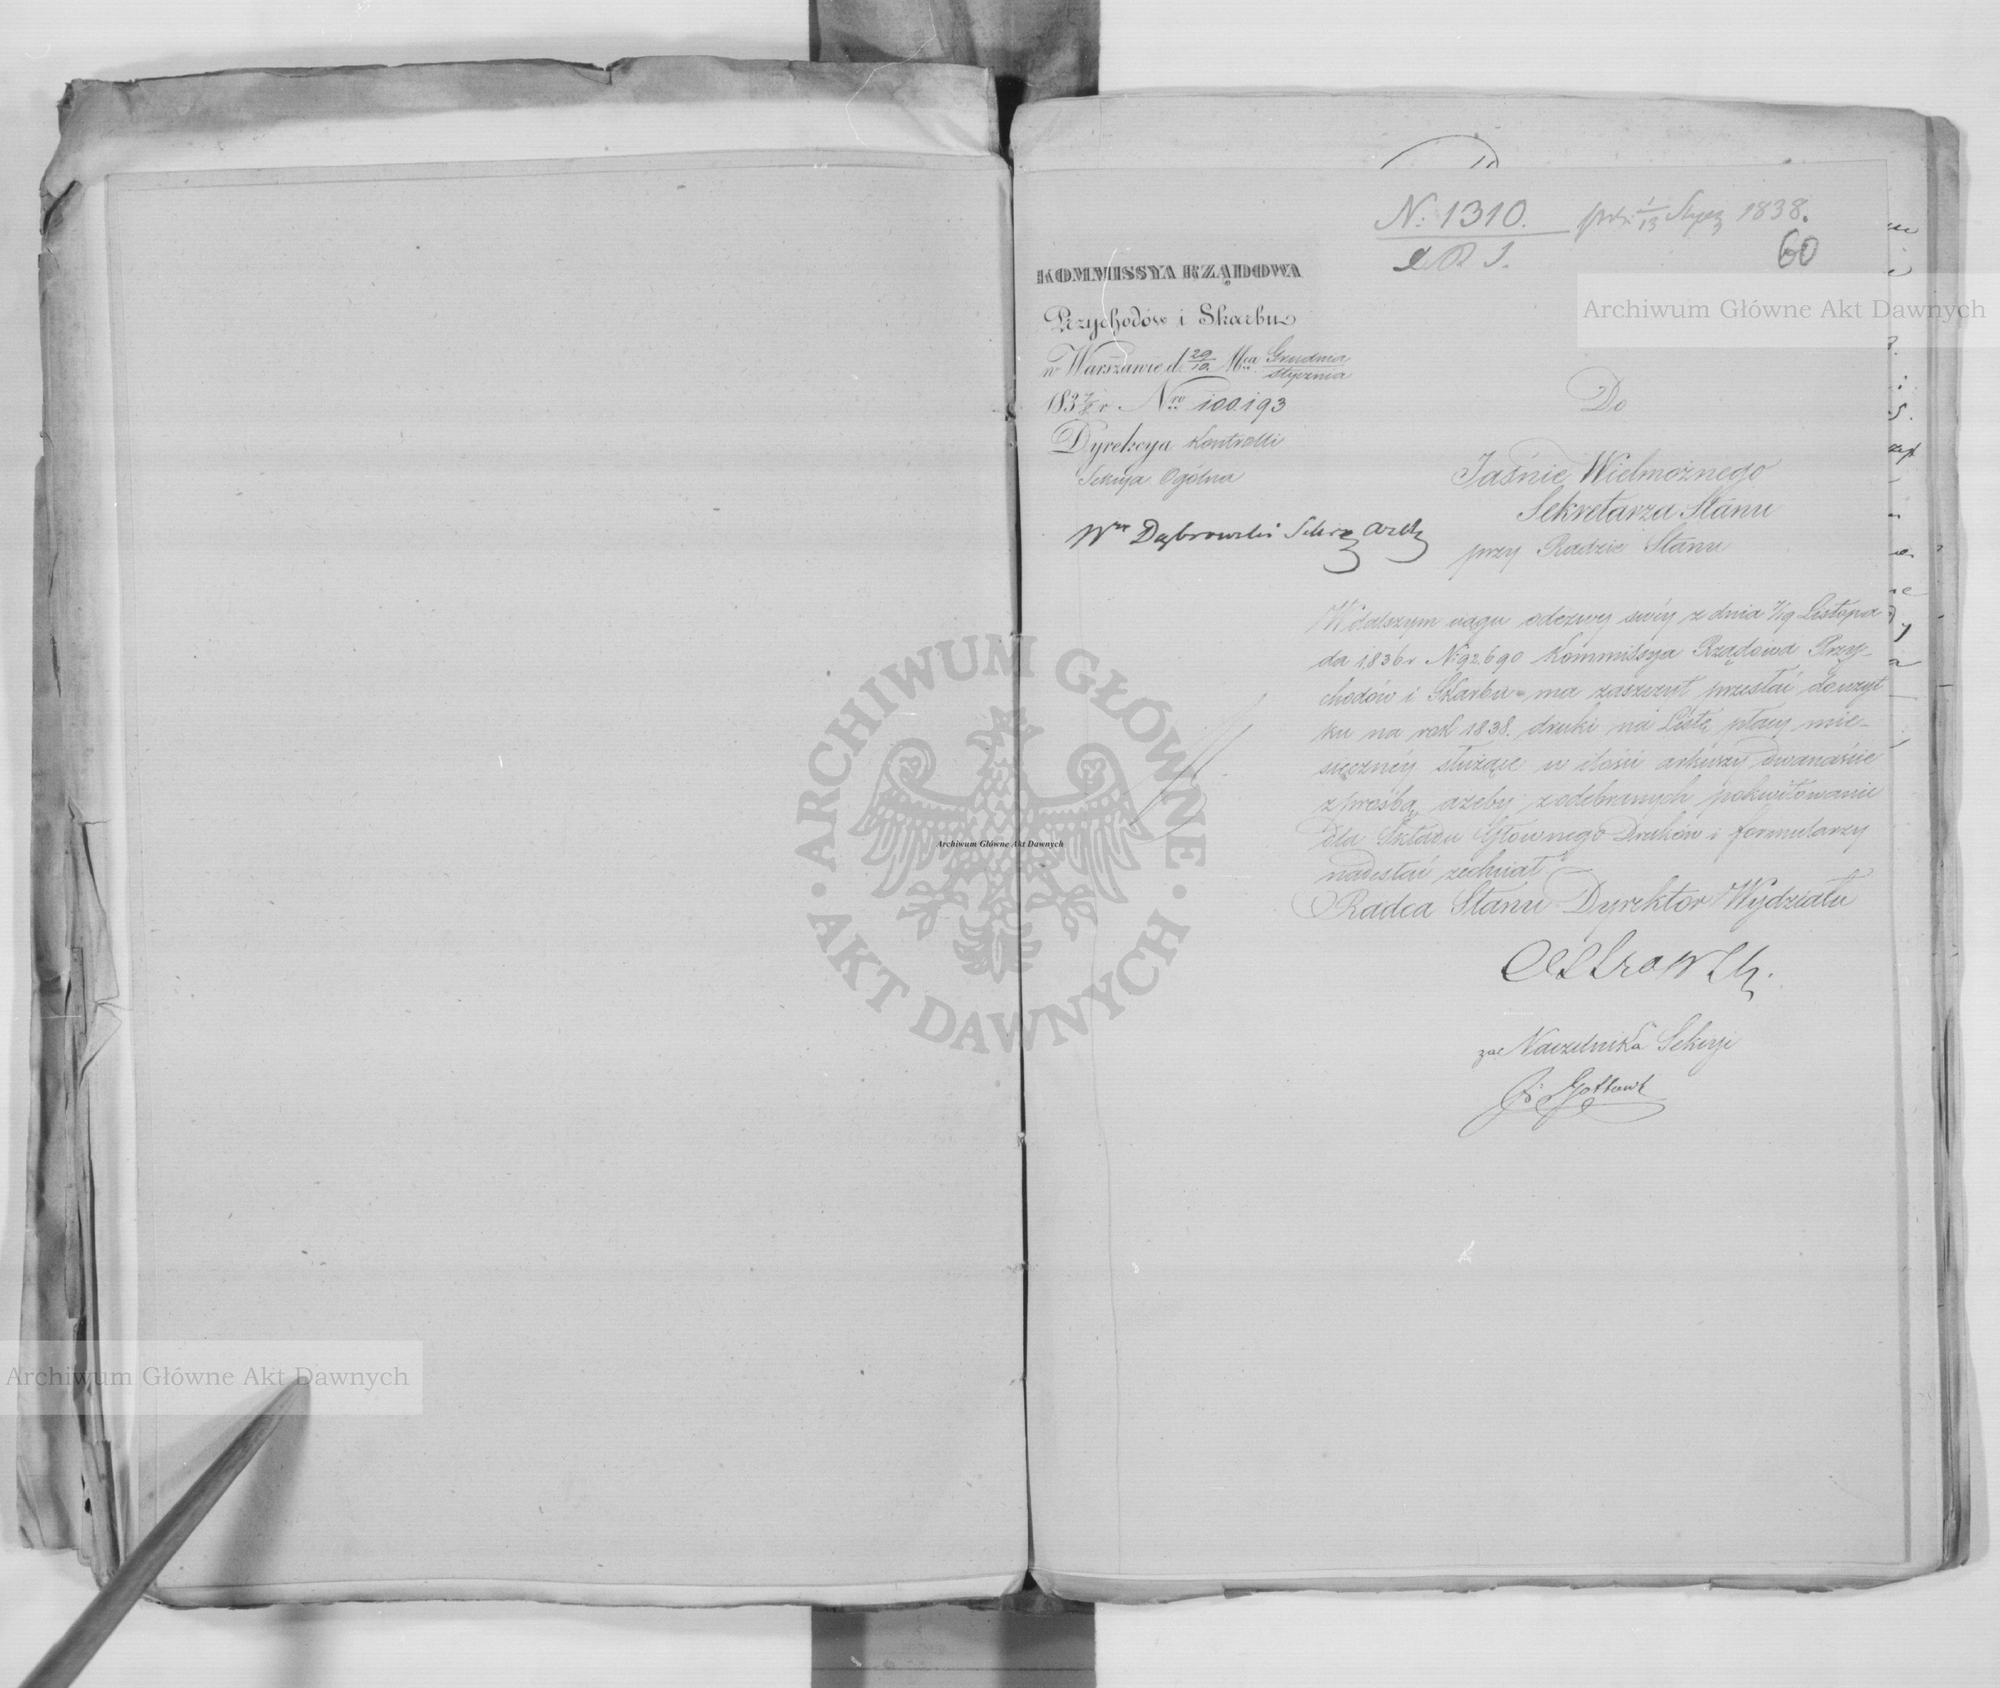 N. 1310.
1/13 Stycz 1838.
60
KOMMISSYA RZĄDOWA
Przychodów i Skarbu
w Warszawie d. 29/10 Mca Grudnia/Stycznia
1837/8 r. Nro 100.193
Dyrekcya Kontrolli
Sekcya Ogólna
Do
Jaśnie Wielmożnego
Sekretarza Stanu
przy Radzie Stanu
Wny Dąbrowski Sekrz
W dalszym ciągu odezwy swéy z dnia 7/19 Listopa
da 1836 r. N. 92.690 Kommissya Rządowa Przy-
chodów i Skarbu ma zaszczyt przesłać do użyt
ku na rok 1838. druki na Listę płacy mie-
sięcznéy służące w ilości arkuszy dwanaście
z prośbą, ażeby z odebranych pokwitowanie
dla Składu Głównego Druków i formularzy
nadesłać zechciał
Radca Stanu Dyrektor Wydziału
za Naczelnika Sekcyi
Archiwum Główne Akt Dawnych
ARCHIWUM GŁÓWNE
AKT DAWNYCH
Archiwum Główne Akt Dawnych
Archiwum Główne Akt Dawnych